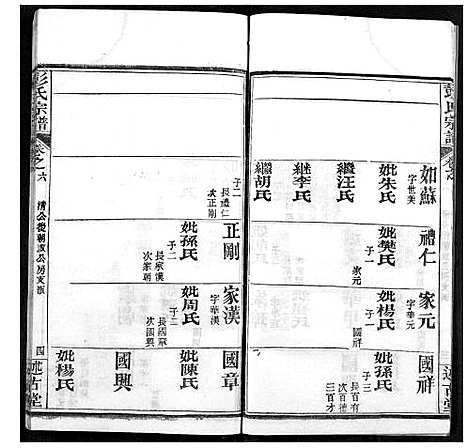 彭氏宗譜
卷之六
述古堂
如蘇
字世美
妣朱氏
繼汪氏
繼李氏
繼胡氏
子二
長禮仁
次正剛
禮仁
妣樊氏
子一
家元
正剛
妣孫氏
子二
長家漢
次家朝
家元
字華元
妣楊氏
子一
國祥
家漢
字華漢
妣周氏
子二
長國章
次國興
國祥
妣孫氏
子三
長百有
次百德
三百才
國章
妣陳氏
國興
妣楊氏
彭氏宗譜
卷之六
清公後朝
公房支派
四
述古堂